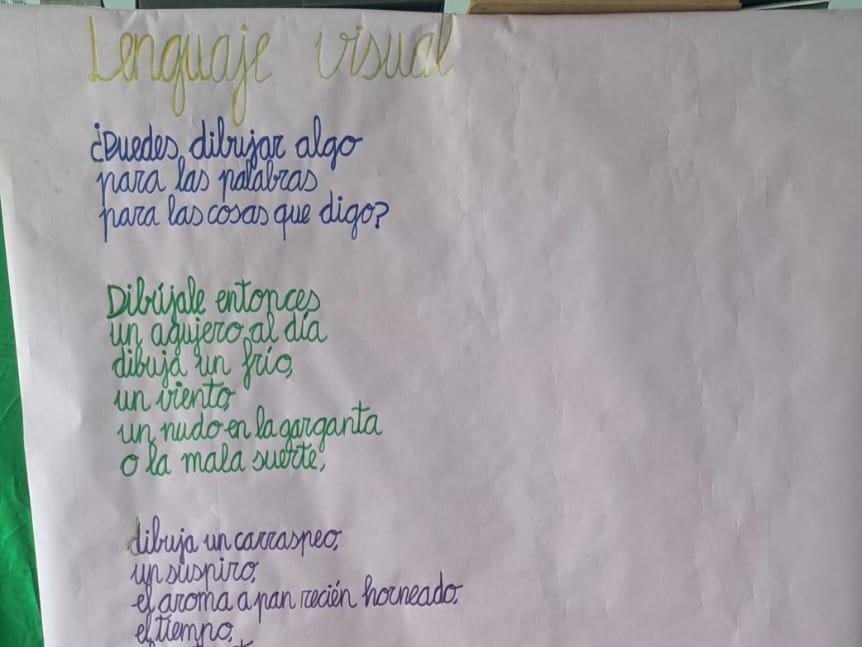 Lenguaje visual
¿Puedes dibujar algo
para las palabras
para las cosas que digo?
Dibújale entonces
un agujero al día
dibuja un frío,
un viento,
un nudo en la garganta
o la mala suerte,
dibuja un carraspeo,
un suspiro,
el aroma a pan recién horneado,
el tiempo,